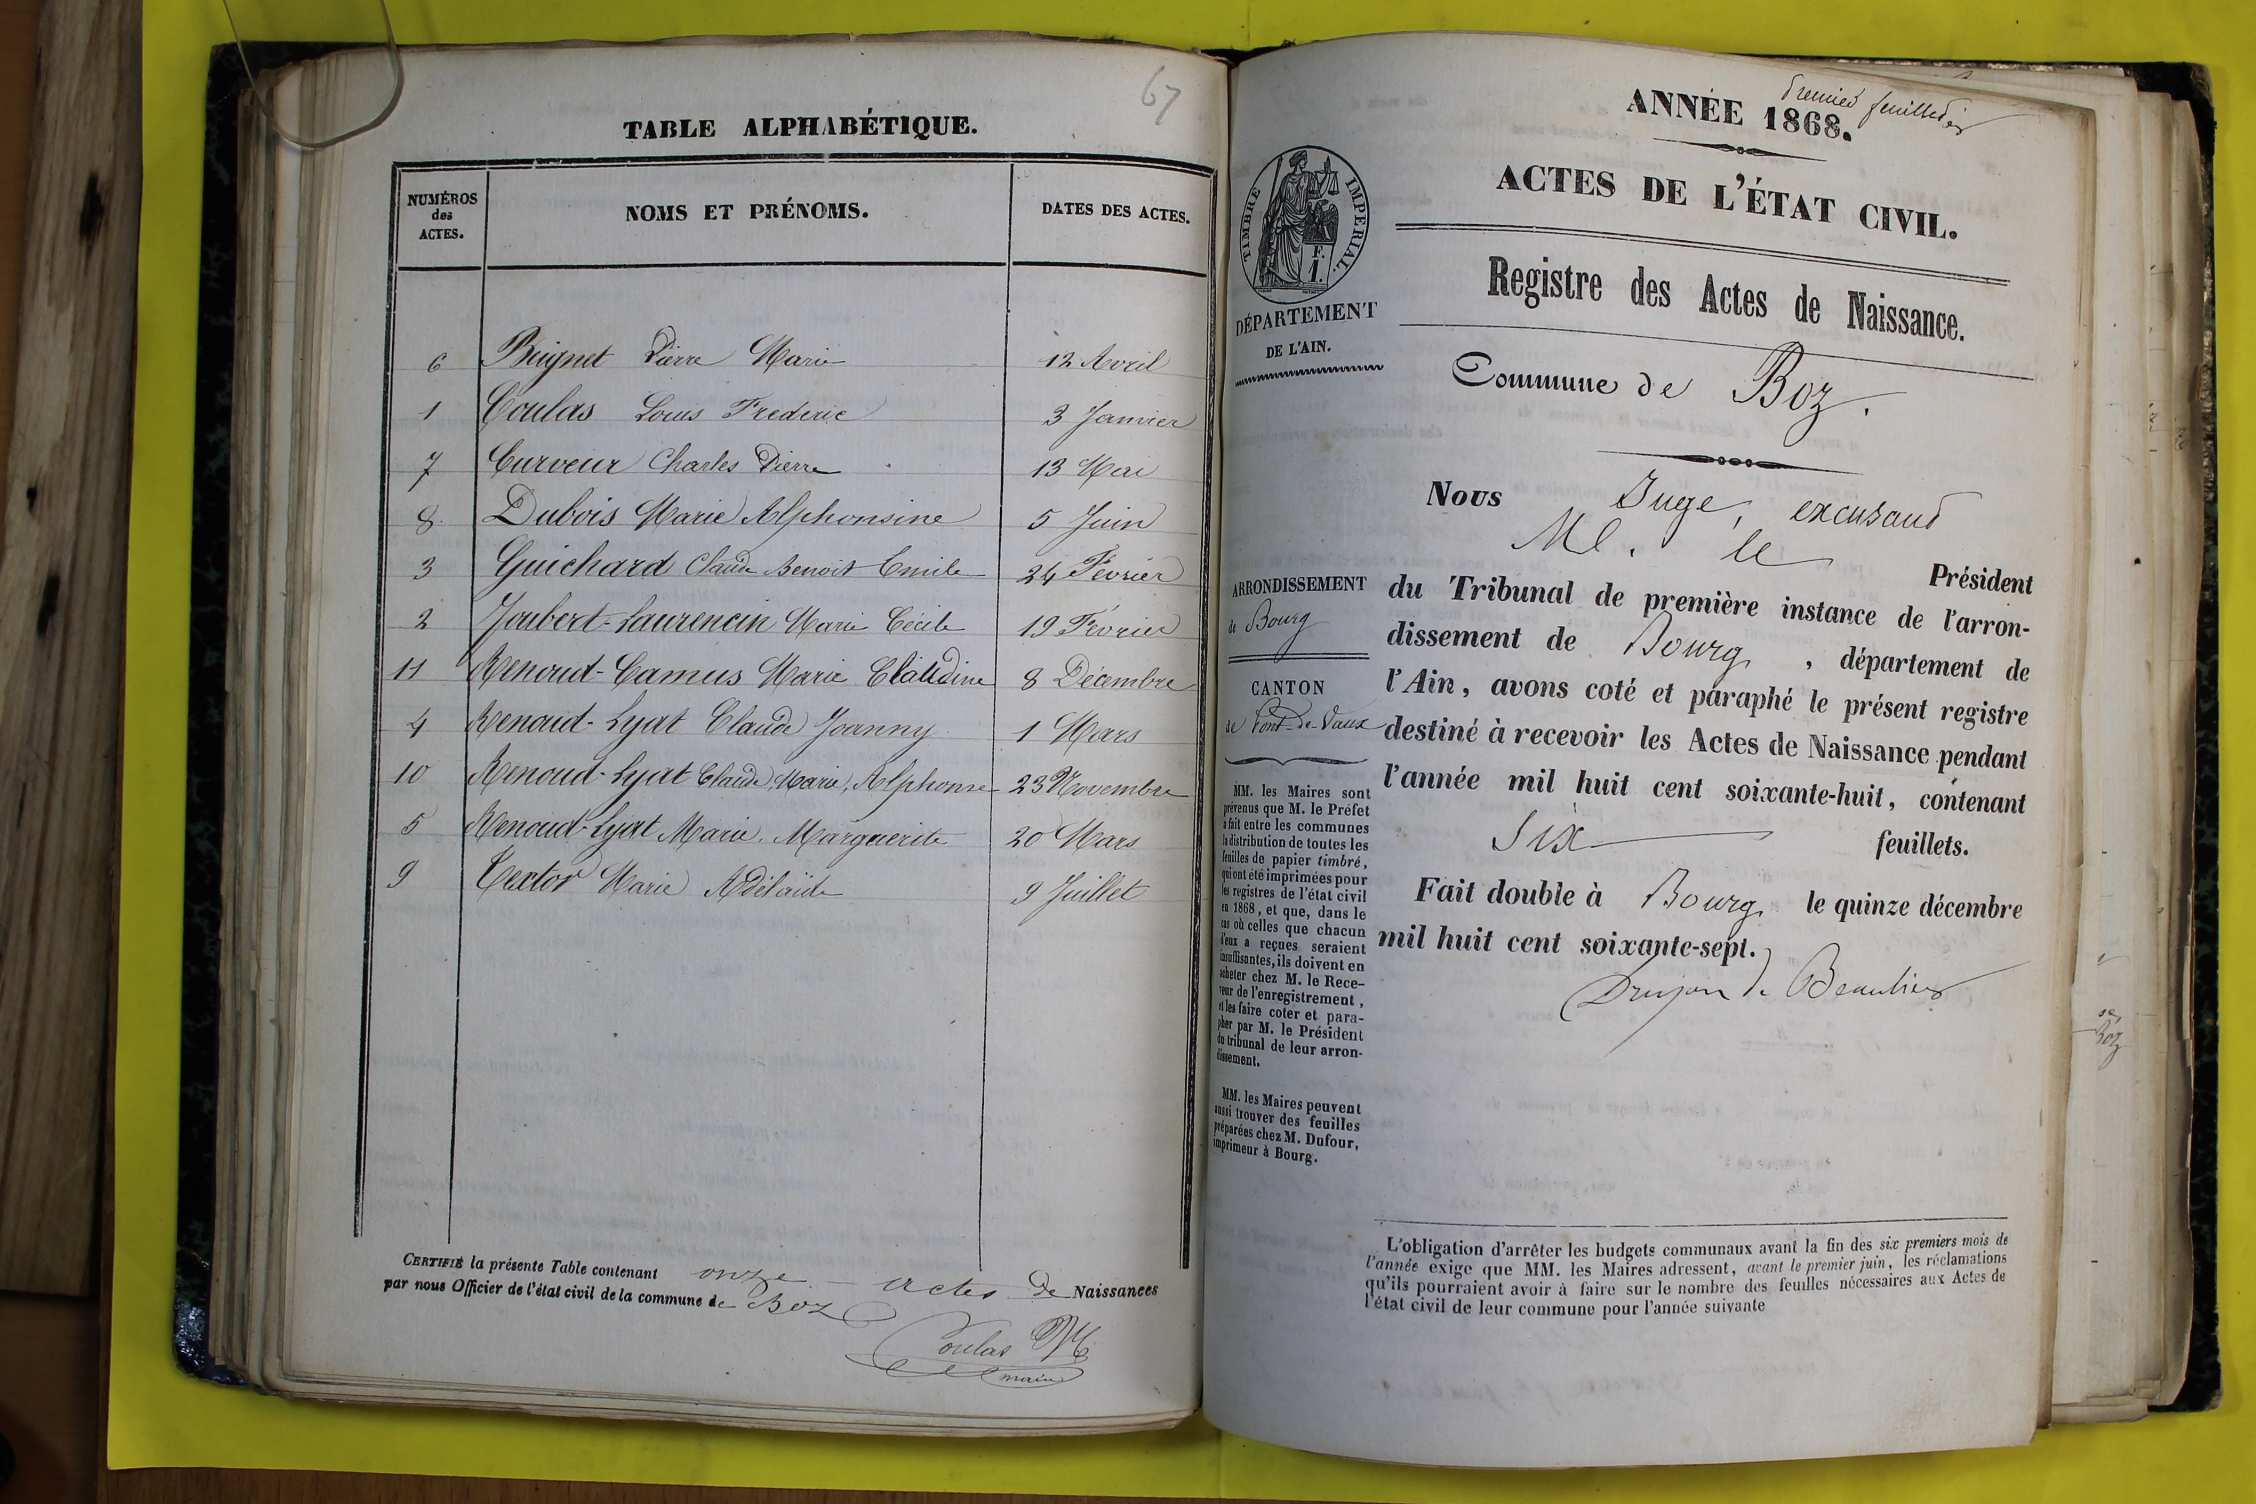 67
TABLE ALPHABÉTIQUE.
NUMÉROS des ACTES. NOMS ET PRÉNOMS. DATES DES ACTES.
6 Beignet Pierre Marie 12 Avril
1 Coulas Louis Frederic 3 Janvier
7 Curveur Charles Pierre 13 Mai
8 Dubois Marie Alphonsine 5 Juin
3 Guichard Claude Benoit Emile 24 Février
2 Joubert-Laurencin Marie Cécile 19 Février
11 Renoud-Camus Marie Claudine 8 Décembre
4 Renoud-Lyat Claude Joanny 1 Mars
10 Renoud-Lyat Claude, Marie, Alphonse 23 Novembre
5 Renoud-Lyat Marie, Marguerite 20 Mars
9 Textor Marie Adélaïde 9 Juillet
CERTIFIÉ la présente Table contenant onze actes de Naissances
par nous Officier de l'état civil de la commune de Boz
Coulas
maire
Premier feuillet
ANNÉE 1868.
ACTES DE L'ÉTAT CIVIL.
Registre des Actes de Naissance.
TIMBRE IMPERIAL.
F.
1.
DÉPARTEMENT
DE L'AIN.
Commune de Boz.
ARRONDISSEMENT
de Bourg
CANTON
de Pont-de-Vaux
MM. les Maires sont
prévenus que M. le Préfet
a fait entre les communes
la distribution de toutes les
feuilles de papier timbré,
qui ont été imprimées pour
les registres de l'état civil
en 1868, et que, dans le
cas où celles que chacun
d'eux a reçues seraient
insuffisantes, ils doivent en
acheter chez M. le Rece-
veur de l'enregistrement,
et les faire coter et para-
pher par M. le Président
du tribunal de leur arron-
dissement.
MM. les Maires peuvent
aussi trouver des feuilles
préparées chez M. Dufour,
imprimeur à Bourg.
Nous Juge, excusant
M. le Président
du Tribunal de première instance de l'arron-
dissement de Bourg, département de
l'Ain, avons coté et paraphé le présent registre
destiné à recevoir les Actes de Naissance pendant
l'année mil huit cent soixante-huit, contenant
Six feuillets.
Fait double à Bourg le quinze décembre
mil huit cent soixante-sept.
Drujon de Beaulieu
L'obligation d'arrêter les budgets communaux avant la fin des six premiers mois de
l'année exige que MM. les Maires adressent, avant le premier juin, les réclamations
qu'ils pourraient avoir à faire sur le nombre des feuilles nécessaires aux Actes de
l'état civil de leur commune pour l'année suivante
Boz